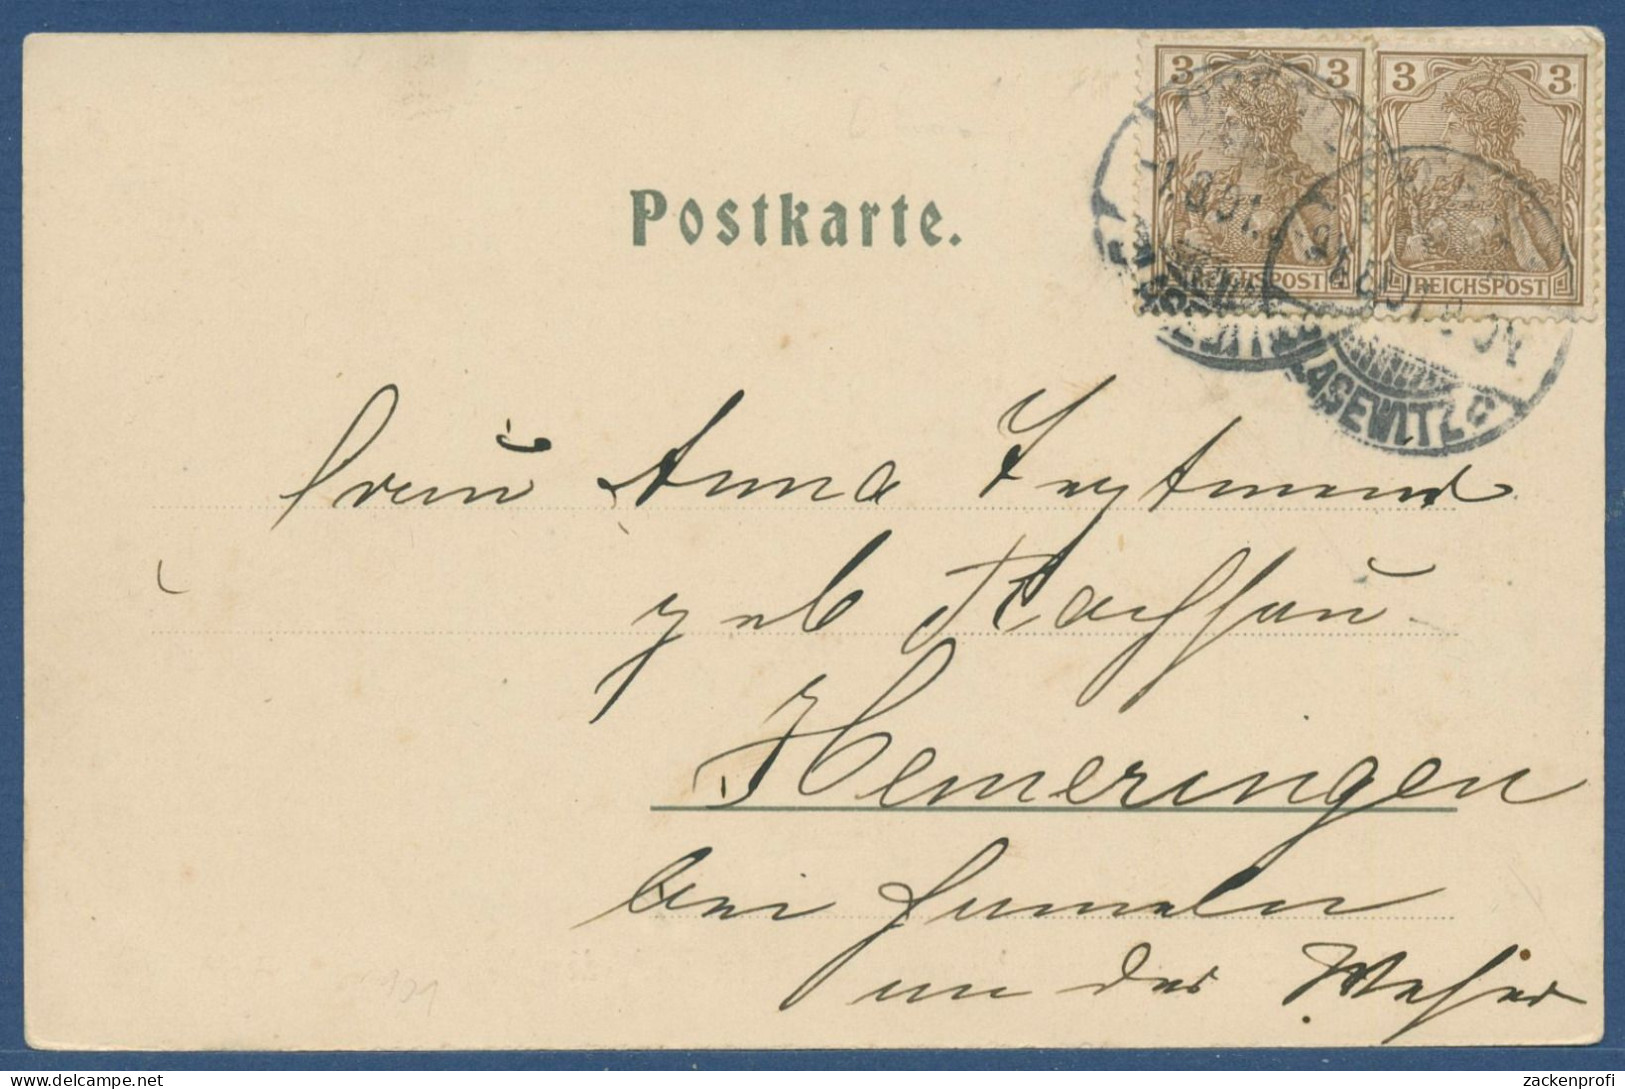 3 3 3 3
REICHSPOST REICHSPOST
BLASEWITZ
Postkarte.
Frau Anna
geb
Hemeringen
bei Hameln
an der Weser
zackenprofi
delcampe.net